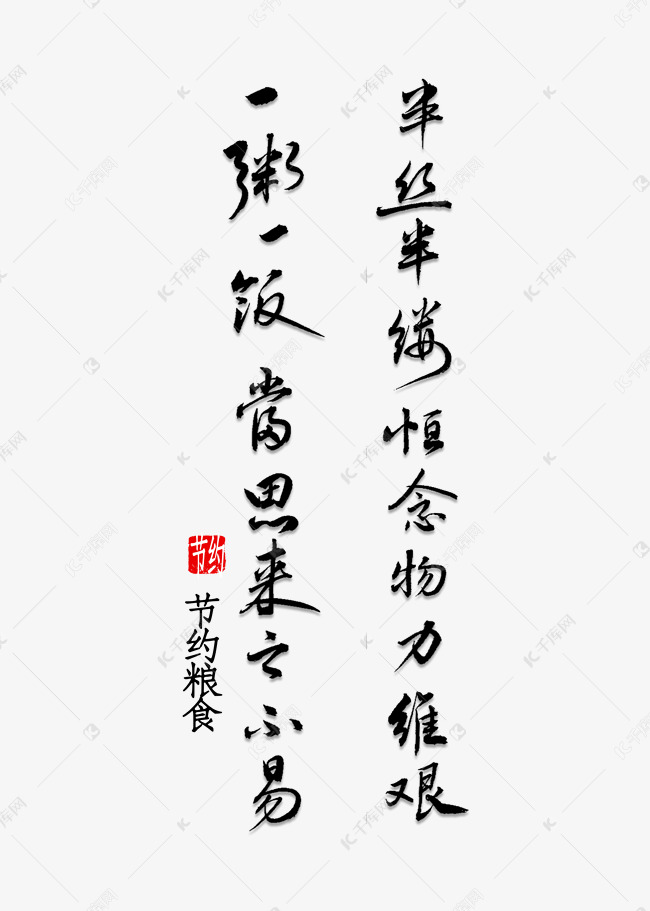 半丝半缕恒念物力维艰
一粥一饭當思来之不易
节约
节约粮食
千库网